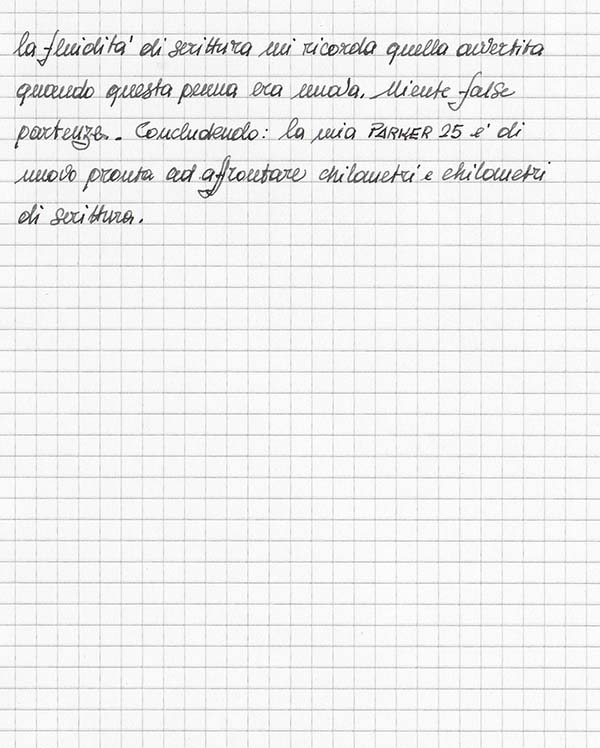 la fluidità di scrittura mi ricorda quella avvertita
quando questa penna era nuova. Niente false
partenze. Concludendo: la mia PARKER 25 è di
nuovo pronta ad affrontare chilometri e chilometri
di scrittura.